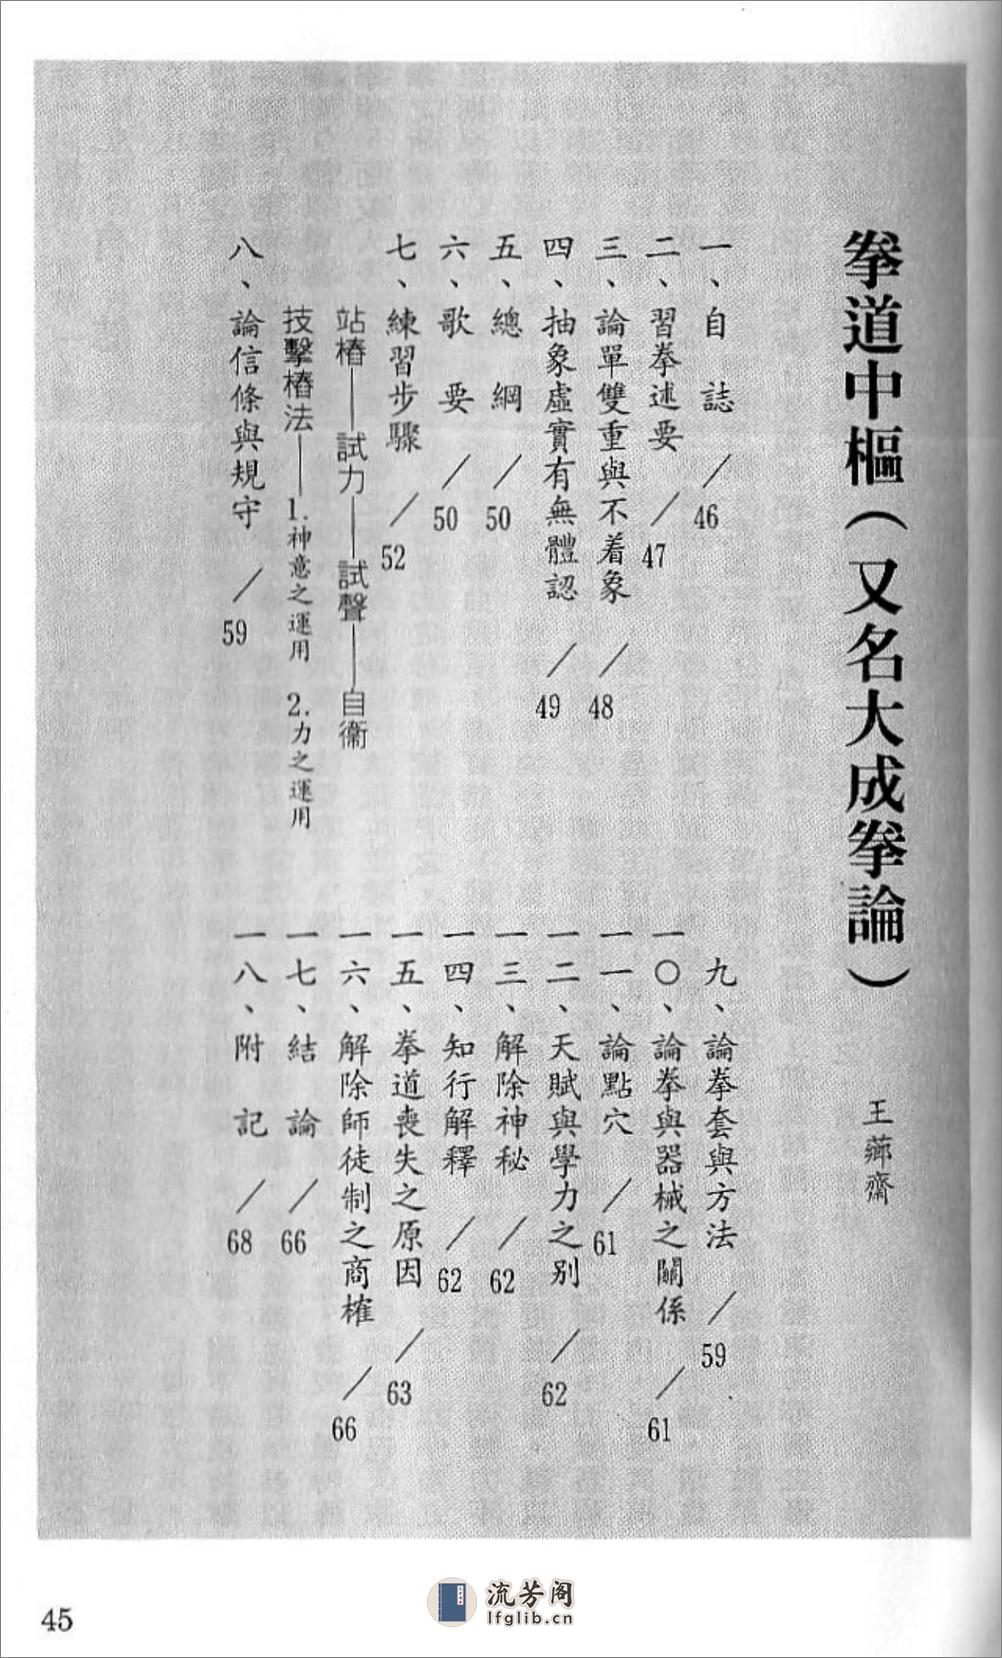 拳道中樞（又名大成拳論）
王薌齋
一、自誌／46
二、習拳述要／47
三、論單雙重與不着象／48
四、抽象虛實有無體認／49
五、總綱／50
六、歌要／50
七、練習步驟／52
站樁——試力——試聲——自衞
技擊樁法——1.神意之運用 2.力之運用
八、論信條與規守／59
九、論拳套與方法／59
一〇、論拳與器械之關係／61
一一、論點穴／61
一二、天賦與學力之別／62
一三、解除神秘／62
一四、知行解釋／62
一五、拳道喪失之原因／63
一六、解除師徒制之商榷／66
一七、結論／66
一八、附記／68
45
流芳阁
lfglib.cn